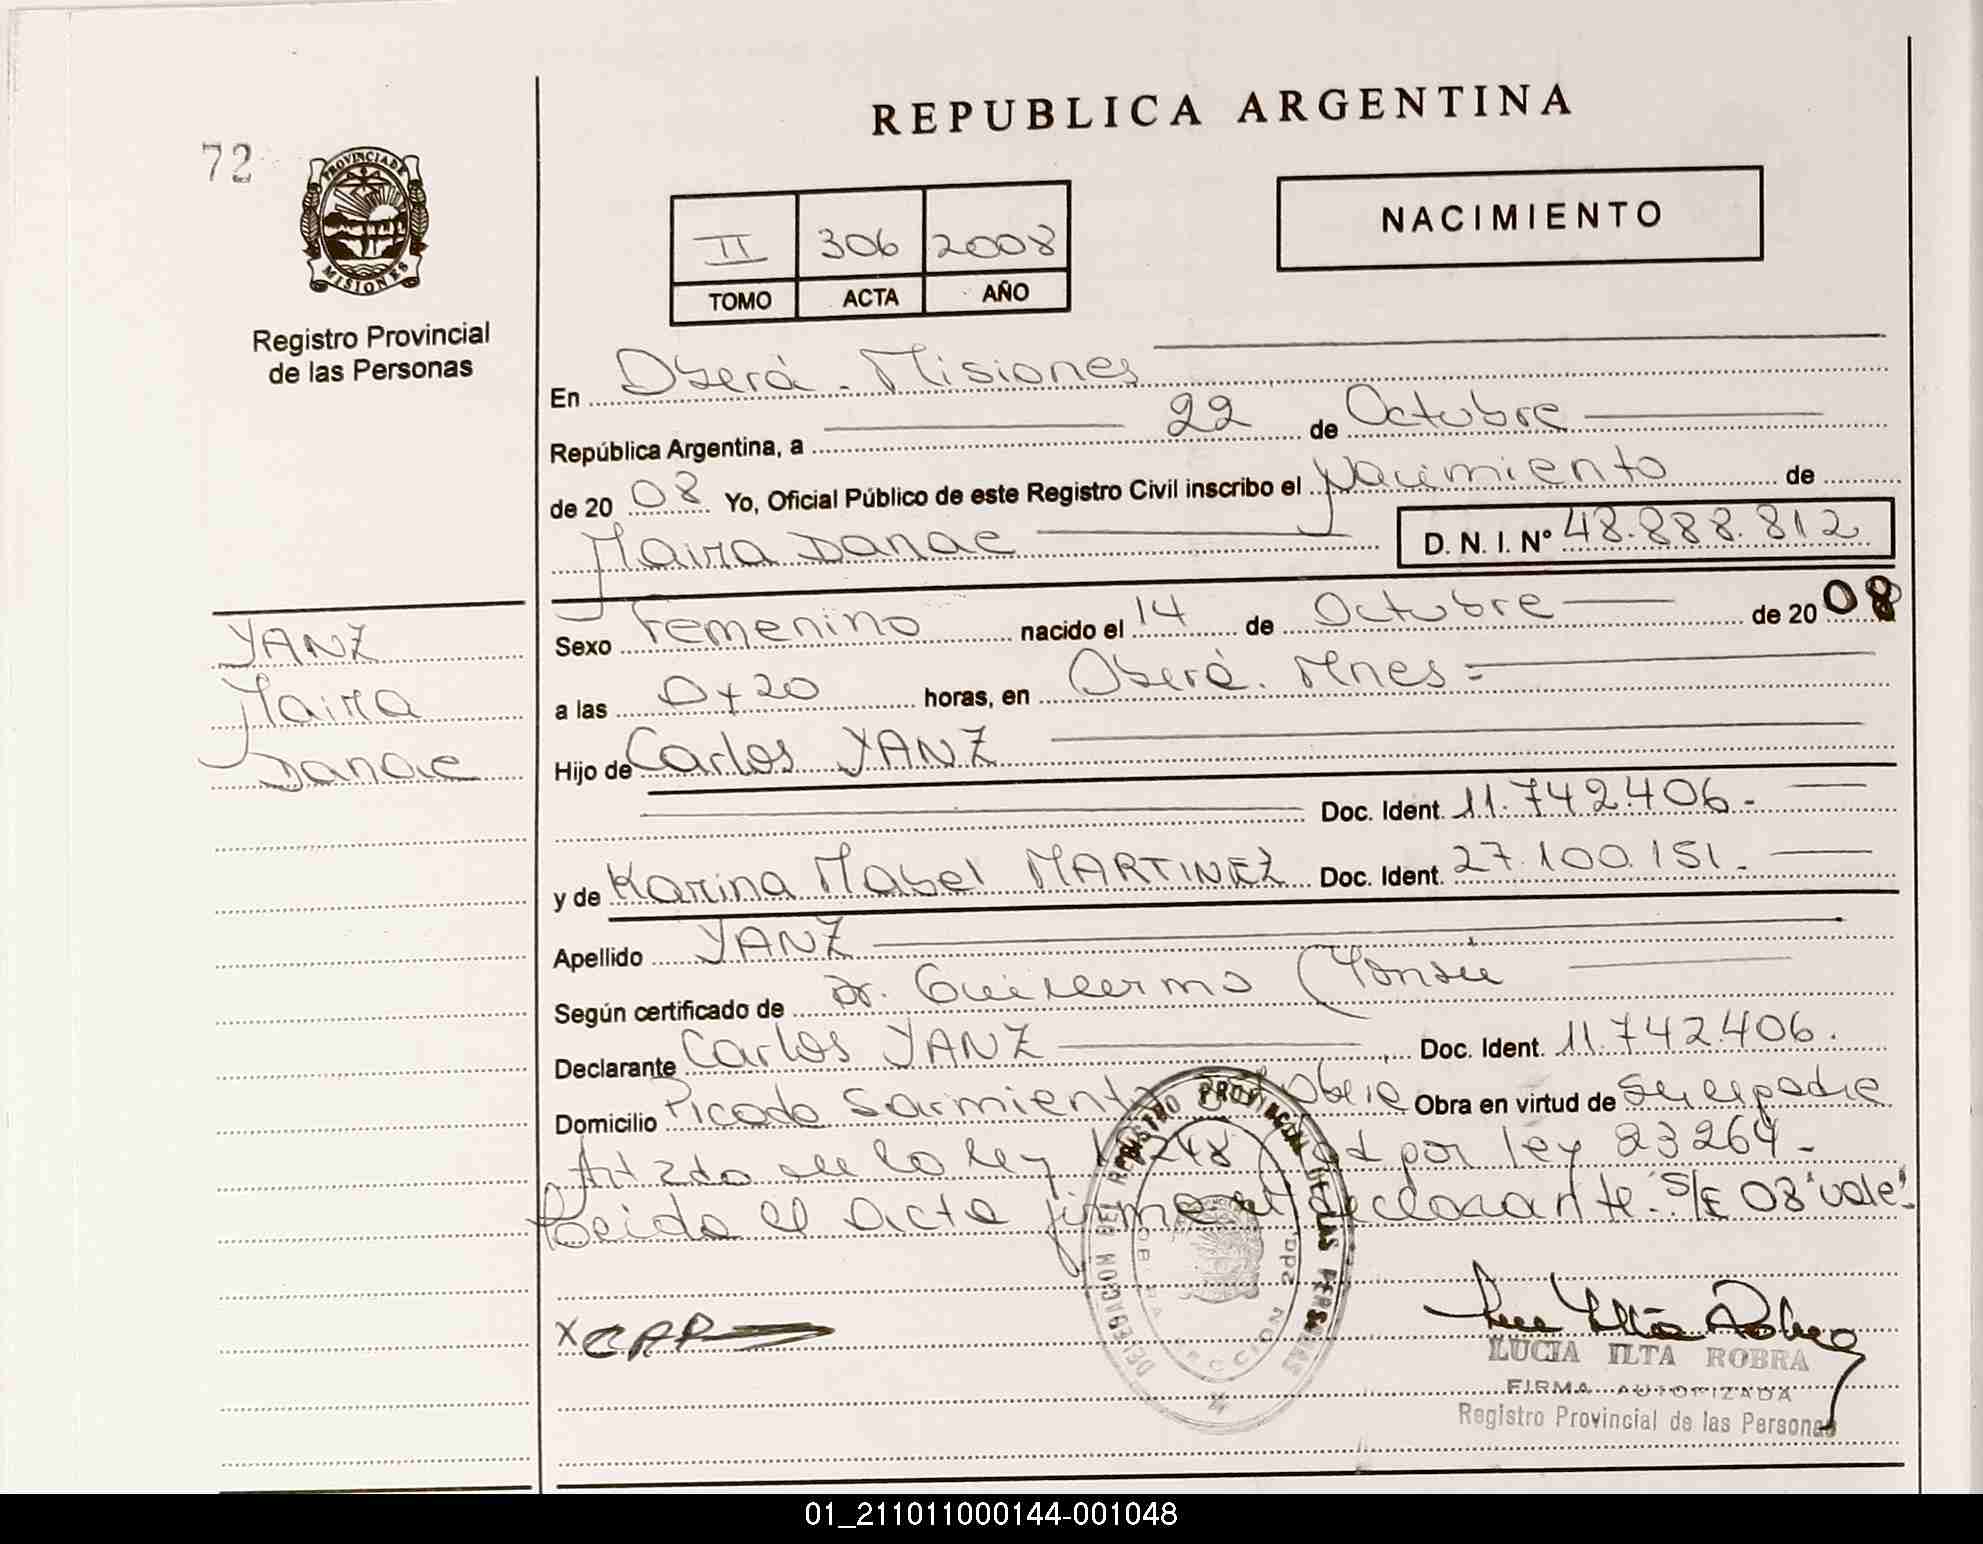 REPUBLICA ARGENTINA
72
PROVINCIA DE
MISIONES
Registro Provincial
de las Personas
II 306 2008
TOMO ACTA AÑO
NACIMIENTO
En Oberá - Misiones
República Argentina, a 22 de Octubre
de 20 08 Yo, Oficial Público de este Registro Civil inscribo el Nacimiento de
Maira Danae D. N. I. N° 48.888.812
YANZ
Maira
Danae
Sexo Femenino nacido el 14 de Octubre de 20 08
a las 0y20 horas, en Oberá. Mnes =
Hijo de Carlos YANZ
Doc. Ident. 11.742.406.-
y de Karina Mabel MARTINEZ Doc. Ident. 27.100.151.-
Apellido YANZ
Según certificado de Dr. Guillermo
Declarante Carlos YANZ Doc. Ident. 11.742.406.
Domicilio Picada Sarmiento Obra en virtud de ser el padre
Art 2do de la ley 18248 por ley 23264-
Leida el acta firma el declarante. S/E 08 "vale".
DELEGACION DEL REGISTRO PROVINCIAL DE LAS PERSONAS
2da.
X
LUCIA ILTA ROBRA
FIRMA AUTORIZADA
Registro Provincial de las Personas
01_211011000144-001048